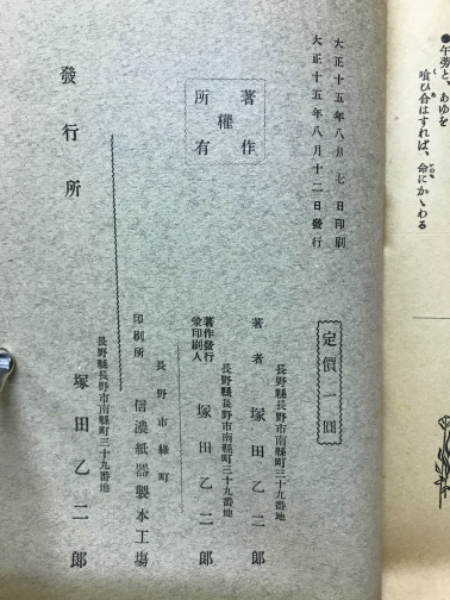 ●午蒡と、あゆを
喰ひ合はすれば、命にかゝわる
大正十五年八月七日印刷
大正十五年八月十二日發行
定價一圓
著作
權
所有
長野縣長野市南縣町三十九番地
著者 塚田乙二郎
長野縣長野市南縣町三十九番地
著作發行
兼印刷人 塚田乙二郎
長野市緣町
印刷所 信濃紙器製本工塲
長野縣長野市南縣町三十九番地
發行所 塚田乙二郎